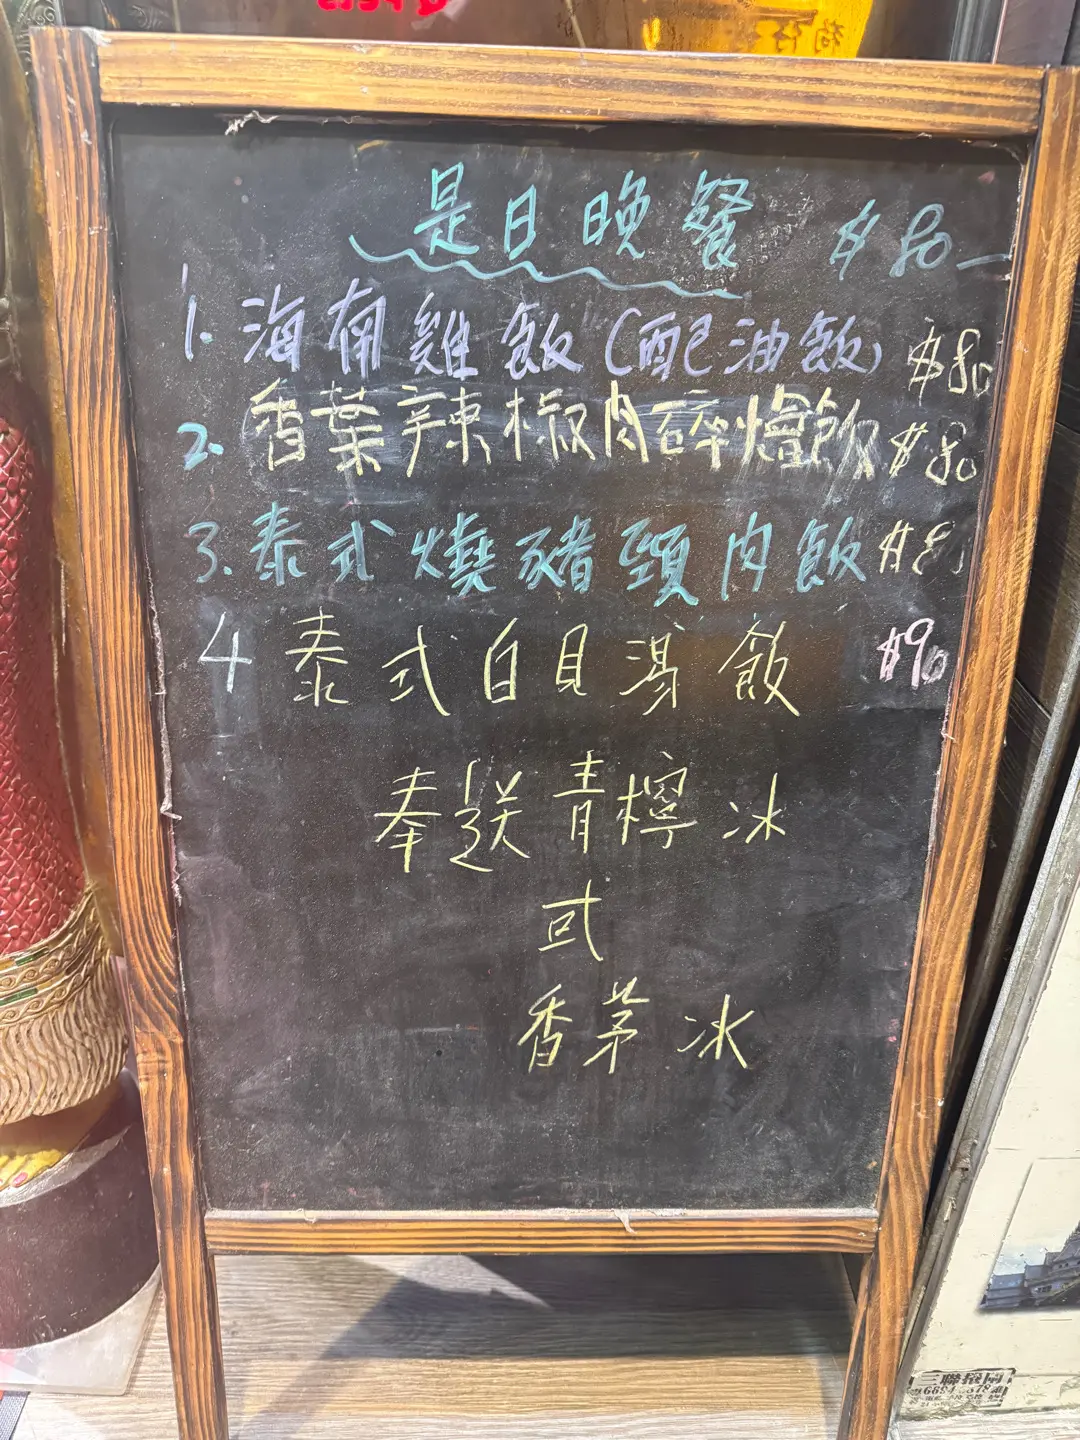 是日晚餐 $80
1. 海南雞飯(配油飯) $80
2. 香葉辣椒肉碎燴飯 $80
3. 泰式燒豬頸肉飯 $80
4 泰式白貝湯飯 $90
奉送青檸冰
或
香茅冰